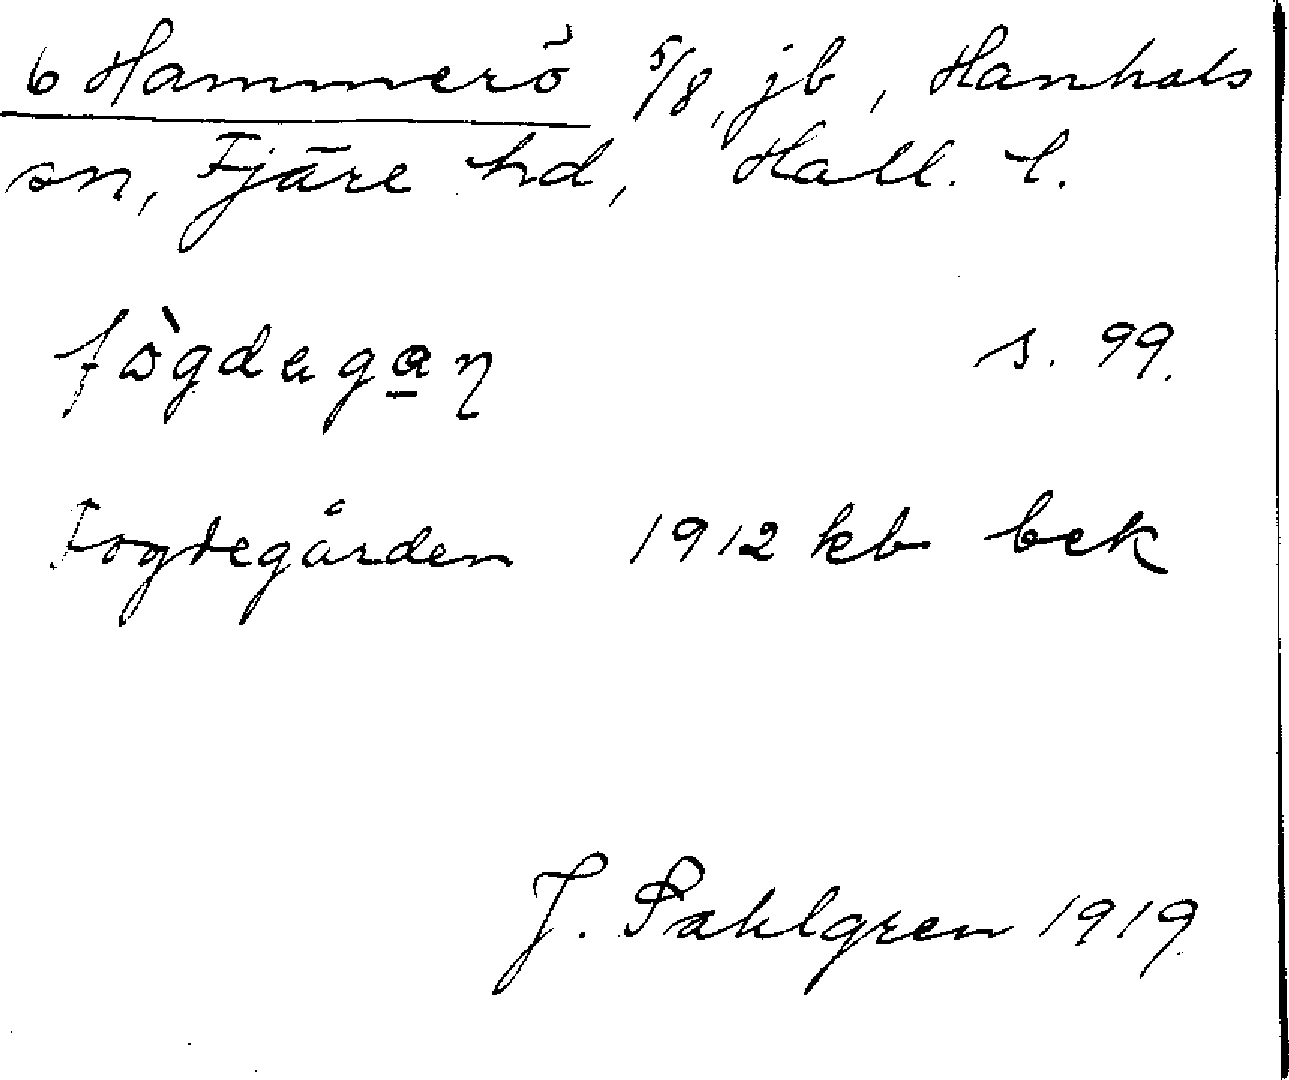 6 Hammerö 5/8, jb, Hanhals
sn, Fjäre hd, Hall. l.
fògdagan s. 99.
Fogdegården 1912 kb bek
J. Sahlgren 1919.